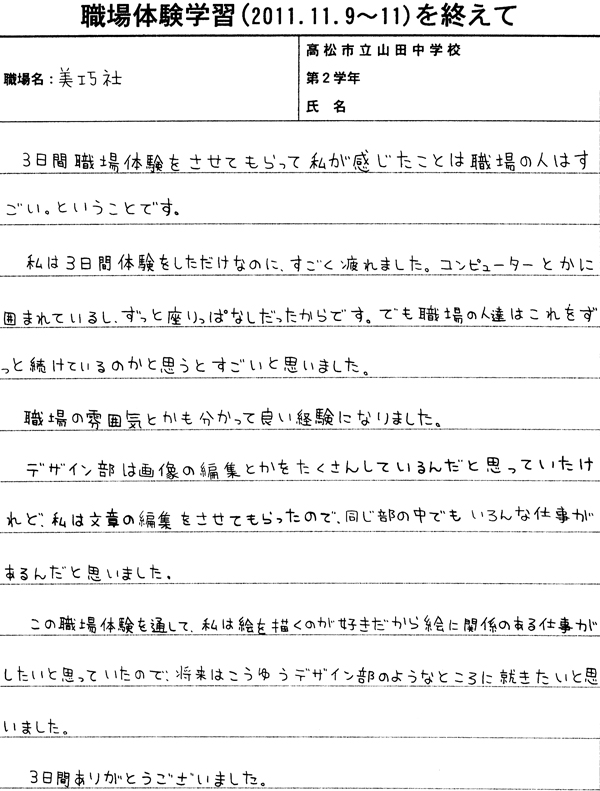 職場体験学習(2011.11.9～11)を終えて
職場名：美巧社
高松市立山田中学校
第２学年
氏　名
3日間職場体験をさせてもらって私が感じたことは職場の人はす
ごい。ということです。
私は3日間体験をしただけなのに、すごく疲れました。コンピューターとかに
囲まれているし、ずっと座りっぱなしだったからです。でも職場の人達はこれをず
っと続けているのかと思うとすごいと思いました。
職場の雰囲気とかも分かって良い経験になりました。
デザイン部は画像の編集とかをたくさんしているんだと思っていたけ
れど、私は文章の編集をさせてもらったので、同じ部の中でもいろんな仕事が
あるんだと思いました。
この職場体験を通して、私は絵を描くのが好きだから絵に関係のある仕事が
したいと思っていたので、将来はこうゆうデザイン部のようなところに就きたいと思
いました。
3日間ありがとうございました。